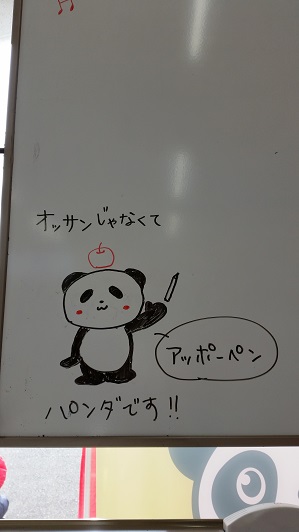 オッサンじゃなくて
アッポーペン
パンダです!!